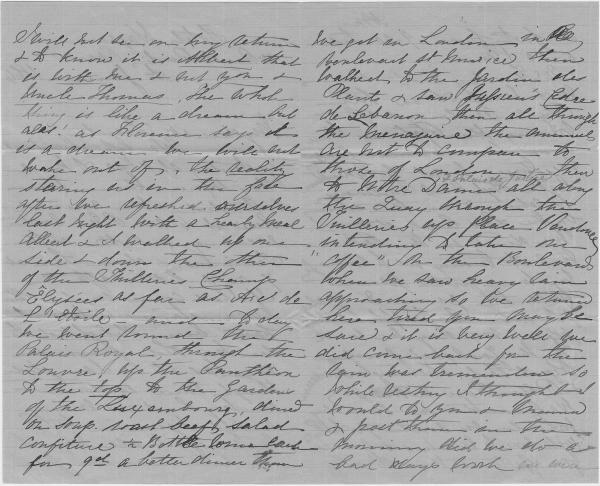 I will not see on my return
& to know it is Albert that
is with me & not you &
Uncle Thomas. The whole
thing is like a dream but
alas! as Florence says it
is a dream we will not
wake out of, the reality
staring us in the face
after we refreshed ourselves
last night with a hearty meal
Albert & I walked up one
side & down the other
of the Thuilleries Champs
Elysées as far as Arc de
L'Etoile - and to day
we went round the
Palais Royal, through the
Louvre, up the Pantheon
to the top to the Gardens
of the Luxembourg, dined
on soup, roast beef, salad
confiture & Bottle wine each
for 9d a better dinner than
we got in London in
boulevard St Michel then
walked to the Jardin des
Plants & saw Jussieu's Cedre
de Lebanon then all through
the Menagerie the animals
are not to compare to
those of London then
to Notre Dame all along
the Quay through the
Thuilleries up Place Vendome
intending to take our
"Coffee" on the Boulevard
when we saw heavy rain
approaching so we returned
here tired you may be
sure & it is very well we
did come back for the
rain was tremendous so
while resting I thought I
would to you & Mamma
& post them in the
morning did we do a
hard days work we were